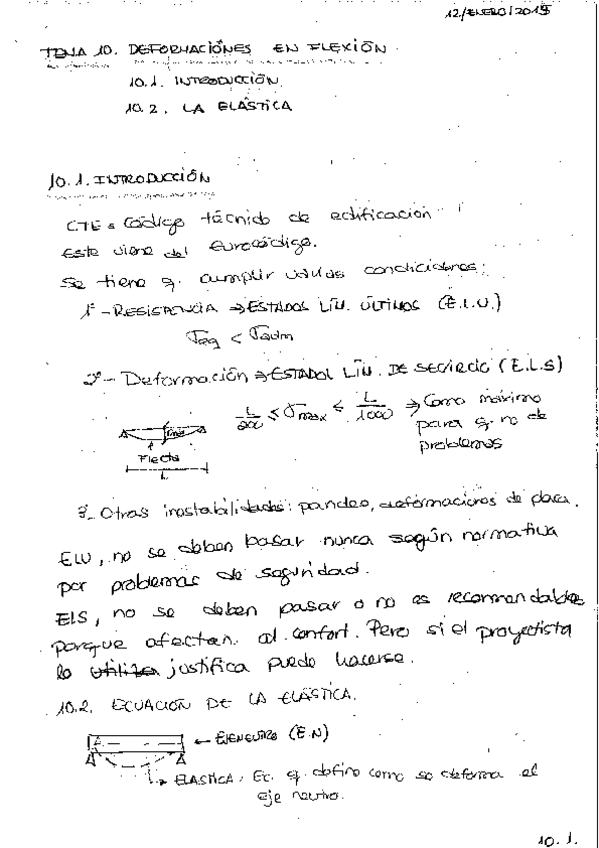 12/ENERO/2015
TEMA 10. DEFORMACIÓNES EN FLEXIÓN
10.1. INTRODUCCIÓN
10.2. LA ELÁSTICA
10.1. INTRODUCCIÓN
CTE = Código técnico de edificación
Este viene del Eurocódigo.
Se tiene q. cumplir varias condiciones:
1º - RESISTENCIA → ESTADOS LÍM. ÚLTIMOS (E.L.U.)
< σadm
2º - Deformación → ESTADOS LÍM. DE SERVICIO (E.L.S)
≤ max ≤ L/1000 → Como máximo
para q. no de
problemas
Flecha
L
3 - Otras inestabilidades: pandeo, deformaciones de placa.
ELU, no se deben pasar nunca según normativa
por problemas de seguridad.
ELS, no se deben pasar o no es recommendable
porque afectan al confort. Pero si el proyectista
lo utiliza justifica puede hacerse.
10.2. ECUACIÓN DE LA ELÁSTICA.
← EJE NEUTRO (E.N)
ELASTICA: Ec. q. define como se deforma el
eje neutro.
10.1.